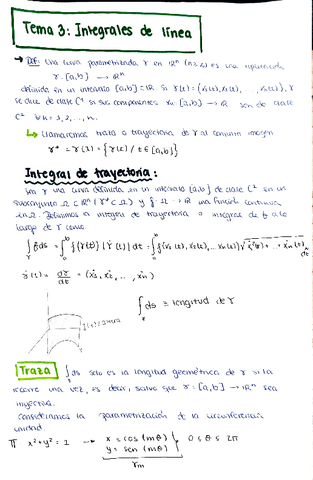 Tema 3: Integrales de línea
→ DEF: Una curva parametrizada γ en ℝⁿ (n≥2) es una aplicación
γ: [a,b] → ℝⁿ
definida en un intervalo [a,b] ⊂ ℝ. Si γ(t) = (x₁(t), x₂(t), ..., xₙ(t)), γ
se dice de clase C¹ si sus componentes xₖ: [a,b] → ℝ son de clase
C¹ ∀k=1,2,...,n.
↳ Llamaremos traza o trayectoria de γ al conjunto imagen
γ* = γ(I) = {γ(t) / t ∈ [a,b]}
Integral de trayectoria:
Sea γ una curva definida en un intervalo [a,b] de clase C¹ en un
subconjunto Ω ⊂ ℝⁿ (γ* ⊂ Ω) y f: Ω → ℝ una función continua
en Ω. Definimos la integral de trayectoria o integral de f a lo
largo de γ como
∫ᵧ f ds = ∫ₐᵇ f(γ(t)) |γ̇(t)| dt = ∫ₐᵇ f(x₁(t), x₂(t), ..., xₙ(t)) √(ẋ₁²(t) + ... + ẋₙ²(t)) dt
γ̇(t) = dγ/dt = (ẋ₁, ẋ₂, ..., ẋₙ)
∫ᵧ ds ≡ longitud de γ
Traza ∫ᵧ ds solo es la longitud geométrica de γ si la
recorre una vez, es decir, salvo que γ: [a,b] → ℝⁿ sea
inyectiva.
Consideramos la parametrización de la circunferencia
unidad.
x²+y² = 1 → x = cos(mθ)
y = sen(mθ) } 0 ≤ θ ≤ 2π
γm